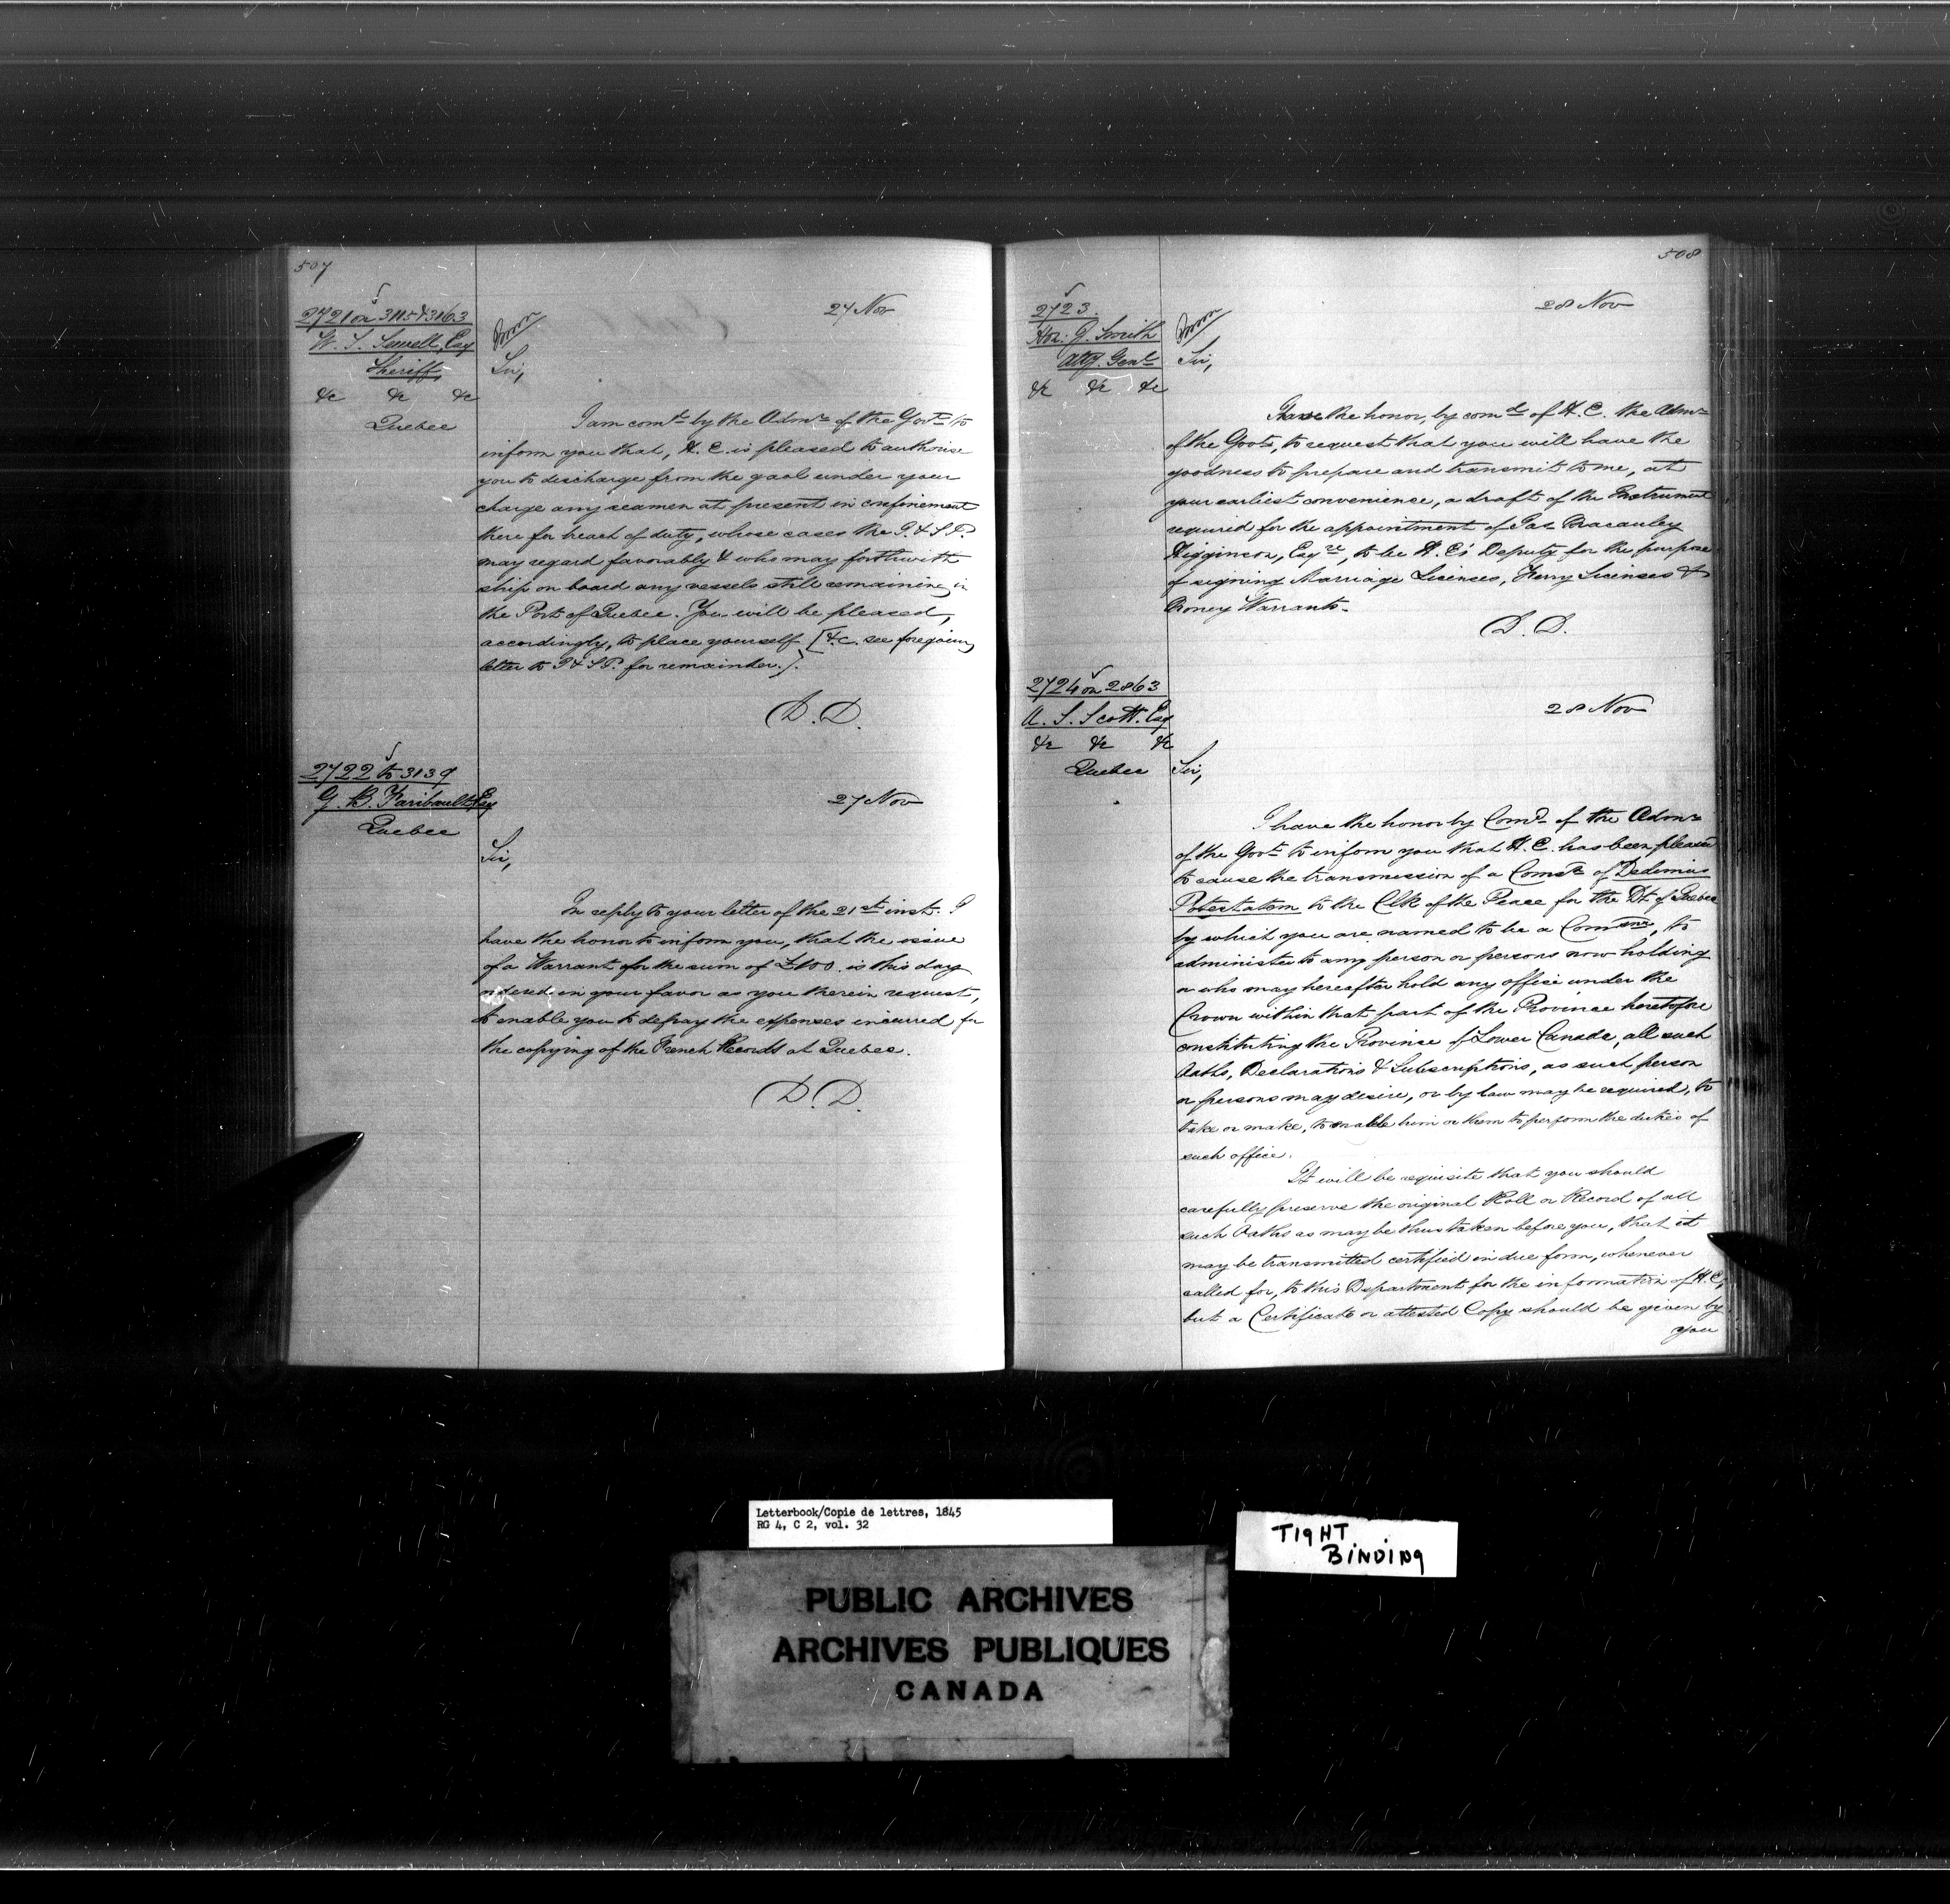 507
2721 on 3115 & 3163
W. S. Sewell, Esq
Sheriff,
&c &c &c
Quebec
27 Nov
Sir,
I am comd by the Admr of the Govt to
inform you that, H. E. is pleased to authorise
you to discharge from the gaol under your
charge any seamen at present in confinement
there for breach of duty, whose cases the I. & S. P.
may regard favorably & who may forthwith
ship on board any vessels still remaining in
the Port of Quebec. You will be pleased,
accordingly, to place yourself [&c. see foregoing
letter to I & S. P. for remainder.].
D. D.
2722 to 3139
G. B. Faribault Esq
Quebec
27 Nov
Sir,
In reply to your letter of the 21st inst. I
have the honor to inform you, that the issue
of a Warrant for the sum of £100. is this day
ordered in your favor as you therein request,
to enable you to defray the expenses incurred for
the copying of the French Records at Quebec.
D. D.
508
2723.
Hon. J. Smith
Atty. Genl
&c &c &c
28 Nov
Sir,
I have the honor, by comd of H. E. the Admr
of the Govt, to request that you will have the
goodness to prepare and transmit to me, at
your earliest convenience, a draft of the Instrument
required for the appointment of Jas Macauley
Higginson, Esqre, to be H. E's Deputy for the purpose
of signing Marriage Licenses, Ferry Licenses &
Money Warrants.
D. D.
2724 on 2863
A. S. Scott. Esq
&c &c &c
Quebec
28 Nov
Sir,
I have the honor by Comd of the Admr
of the Govt to inform you that H. E. has been pleased
to cause the transmission of a Comsn of Dedimus
Potestatem to the Clk of the Peace for the Dt. of Quebec
by which you are named to be a Commr, to
administer to any person or persons now holding
or who may hereafter hold any office under the
Crown within that part of the Province heretofore
constituting the Province of Lower Canada, all such
Oaths, Declarations & Subscriptions, as such person
or persons may desire, or by law may be required, to
take or make, to enable him or them to perform the duties of
such office.
It will be requisite that you should
carefully preserve the original Roll or Record of all
such Oaths as may be thus taken before you, that it
may be transmitted certified in due form, whenever
called for, to this Department for the information of H. E.,
but a Certificate or attested Copy should be given by
you
Letterbook/Copie de lettres, 1845
RG 4, C 2, vol. 32
TIGHT
BINDING
PUBLIC ARCHIVES
ARCHIVES PUBLIQUES
CANADA